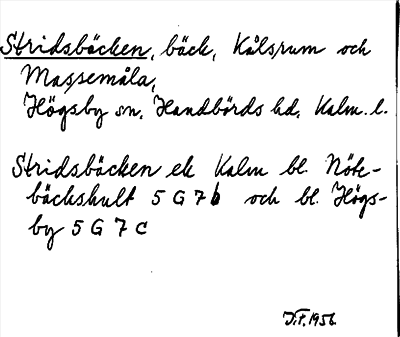 Stridsbäcken, bäck, Kålsrum och
Massemåla,
Högsby sn, Handbörds hd, Kalm. l.
Stridsbäcken ek Kalm bl. Nöte-
bäckshult 5 G 7 b och bl. Högs-
by 5 G 7 c
1956